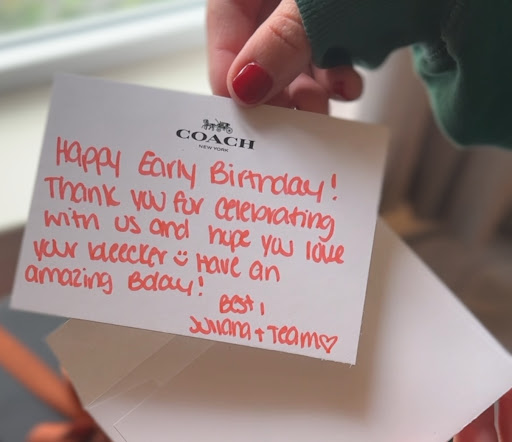 COACH
NEW YORK
Happy Early Birthday!
Thank you for celebrating
with us and hope you love
your bleecker Have an
amazing Bday!
Best,
Juliana + Team